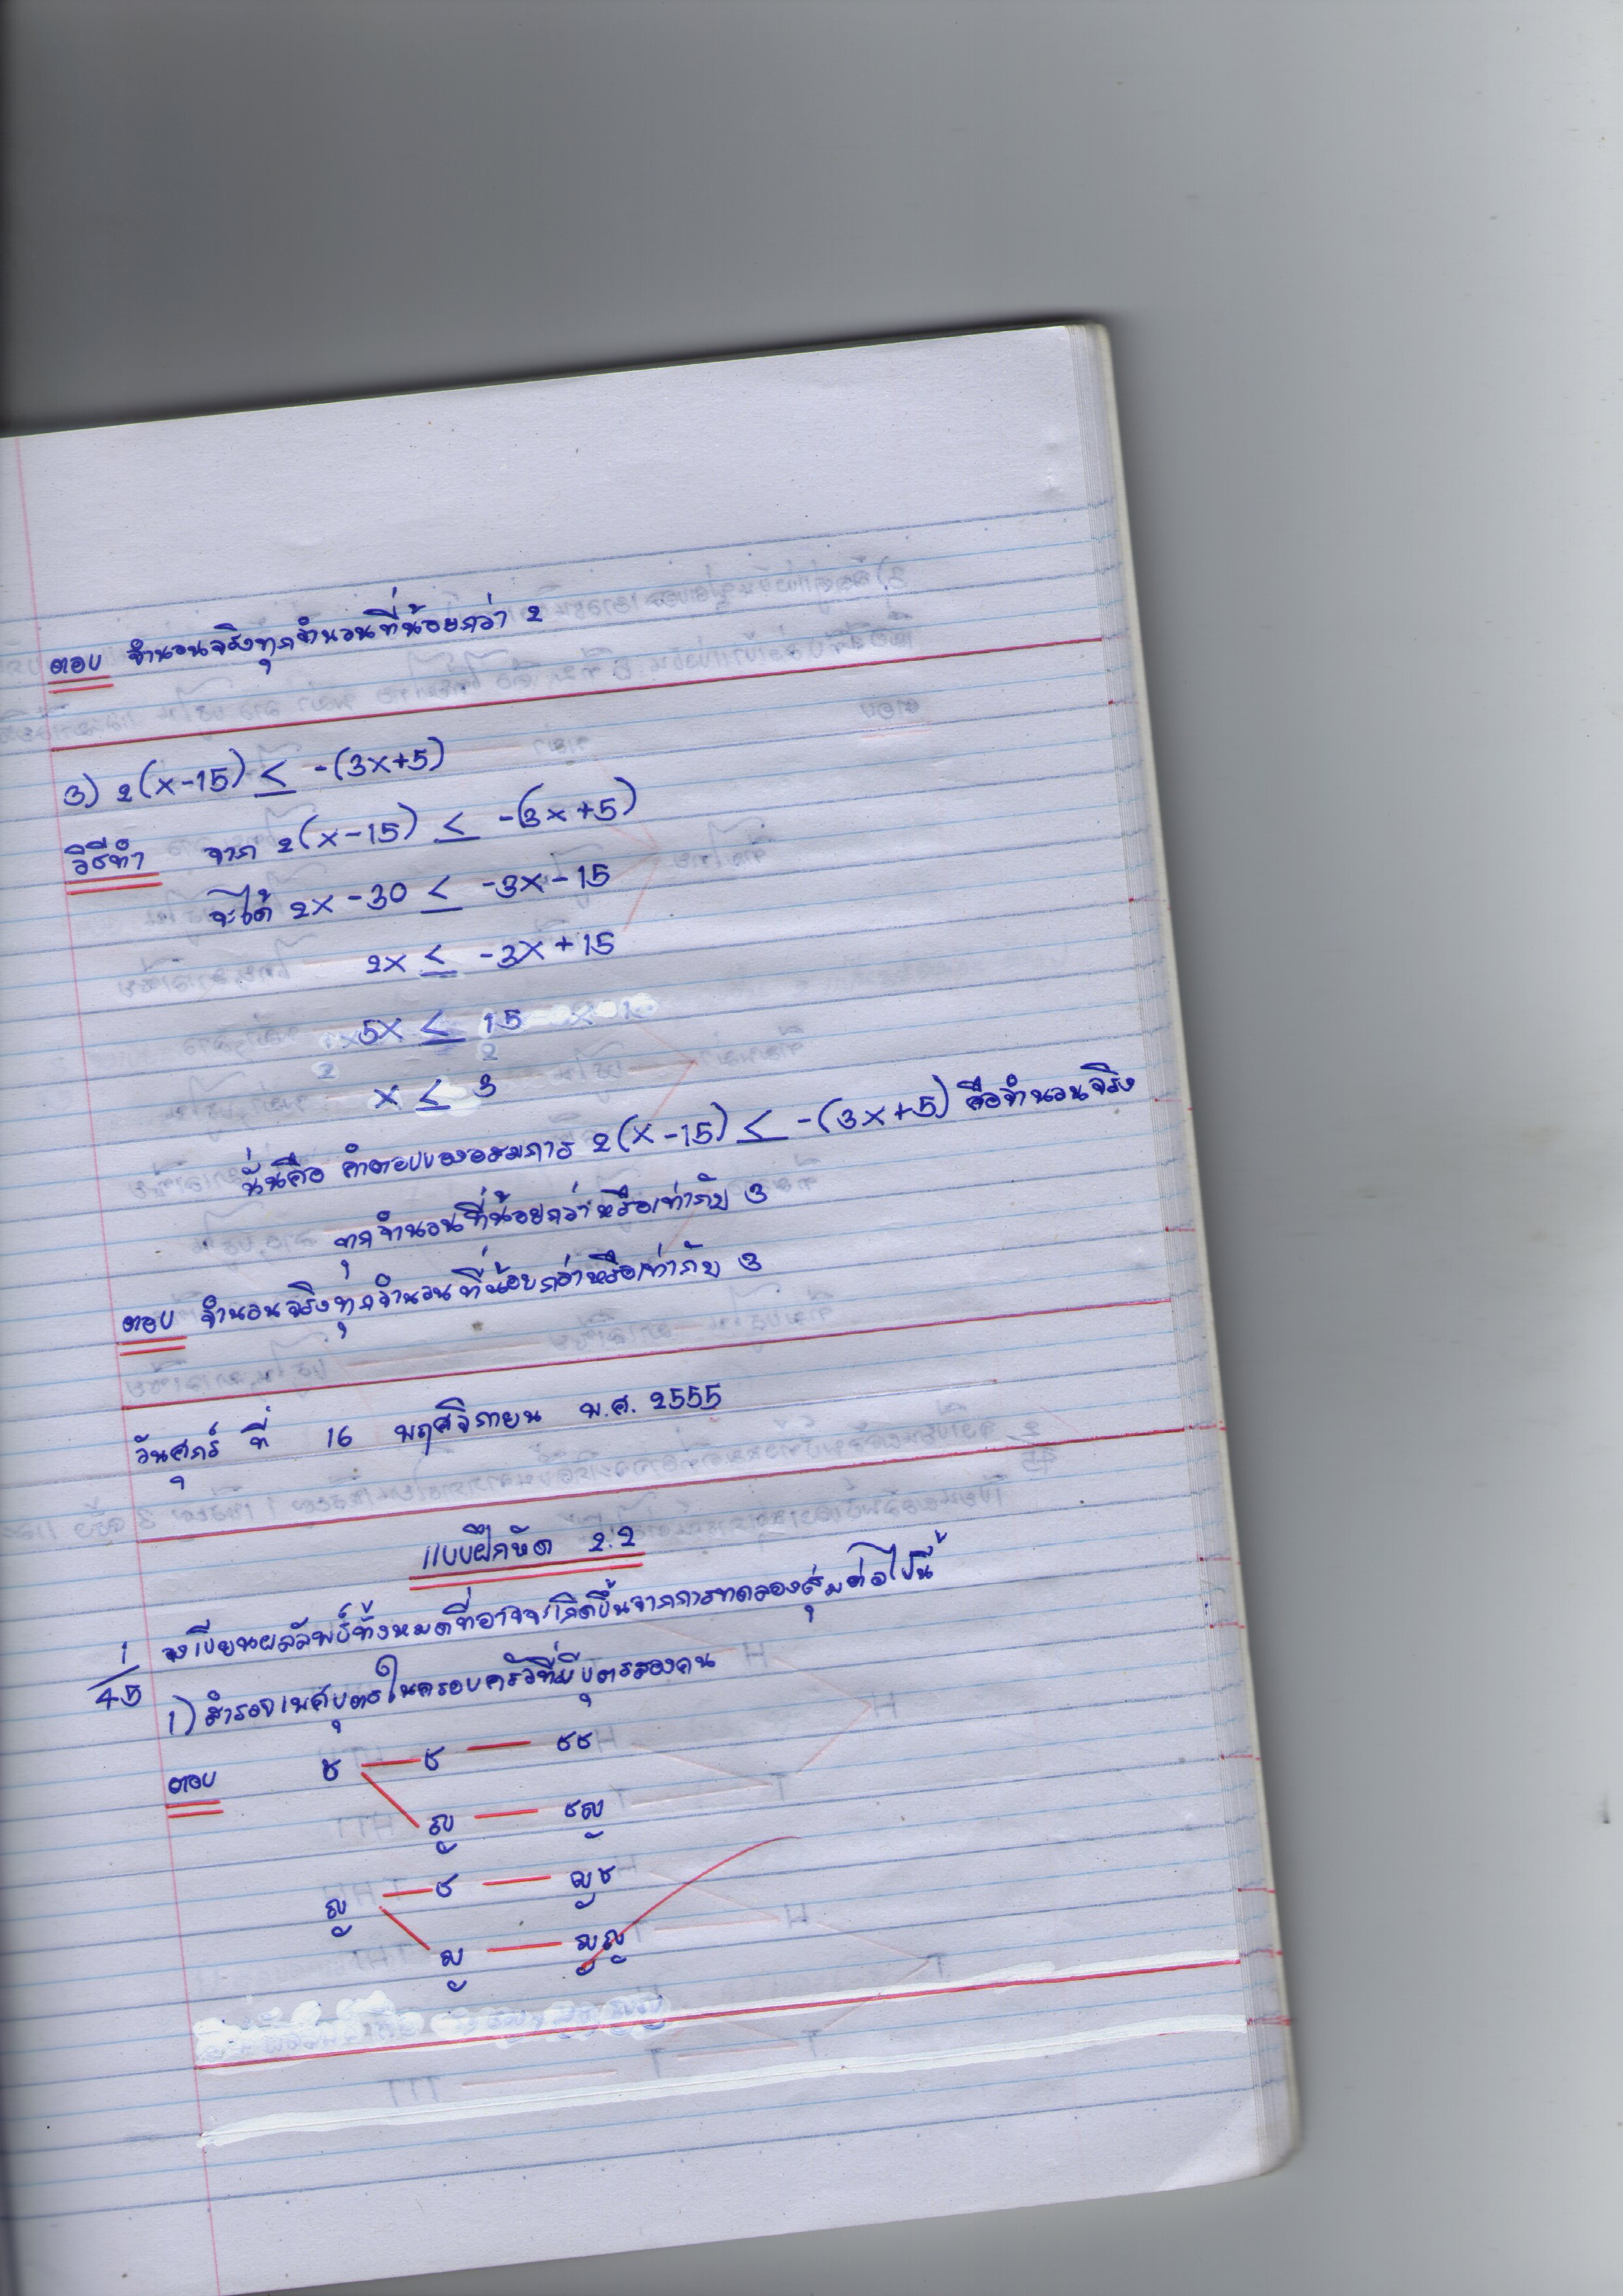 ตอบ จำนวนจริงทุกจำนวนที่น้อยกว่า 2
3) 2(x-15) ≤ -(3x+5)
วิธีทำ จาก 2(x-15) ≤ -(3x+5)
จะได้ 2x -30 ≤ -3x-15
2x ≤ -3x+15
5x ≤ 15
x ≤ 3
นั่นคือ คำตอบของอสมการ 2(x-15) ≤ -(3x+5) คือจำนวนจริง
ทุกจำนวนที่น้อยกว่าหรือเท่ากับ 3
ตอบ จำนวนจริงทุกจำนวนที่น้อยกว่าหรือเท่ากับ 3
วันศุกร์ ที่ 16 พฤศจิกายน พ.ศ. 2555
แบบฝึกหัด 2.2
1/45 จงเขียนผลลัพธ์ทั้งหมดที่อาจจะเกิดขึ้นจากการทดลองสุ่มต่อไปนี้
1) สำรวจเพศบุตรในครอบครัวที่มีบุตรสองคน
ตอบ ช — ช — ชช
ญ — ชญ
ญ — ช — ญช
ญ — ญญ